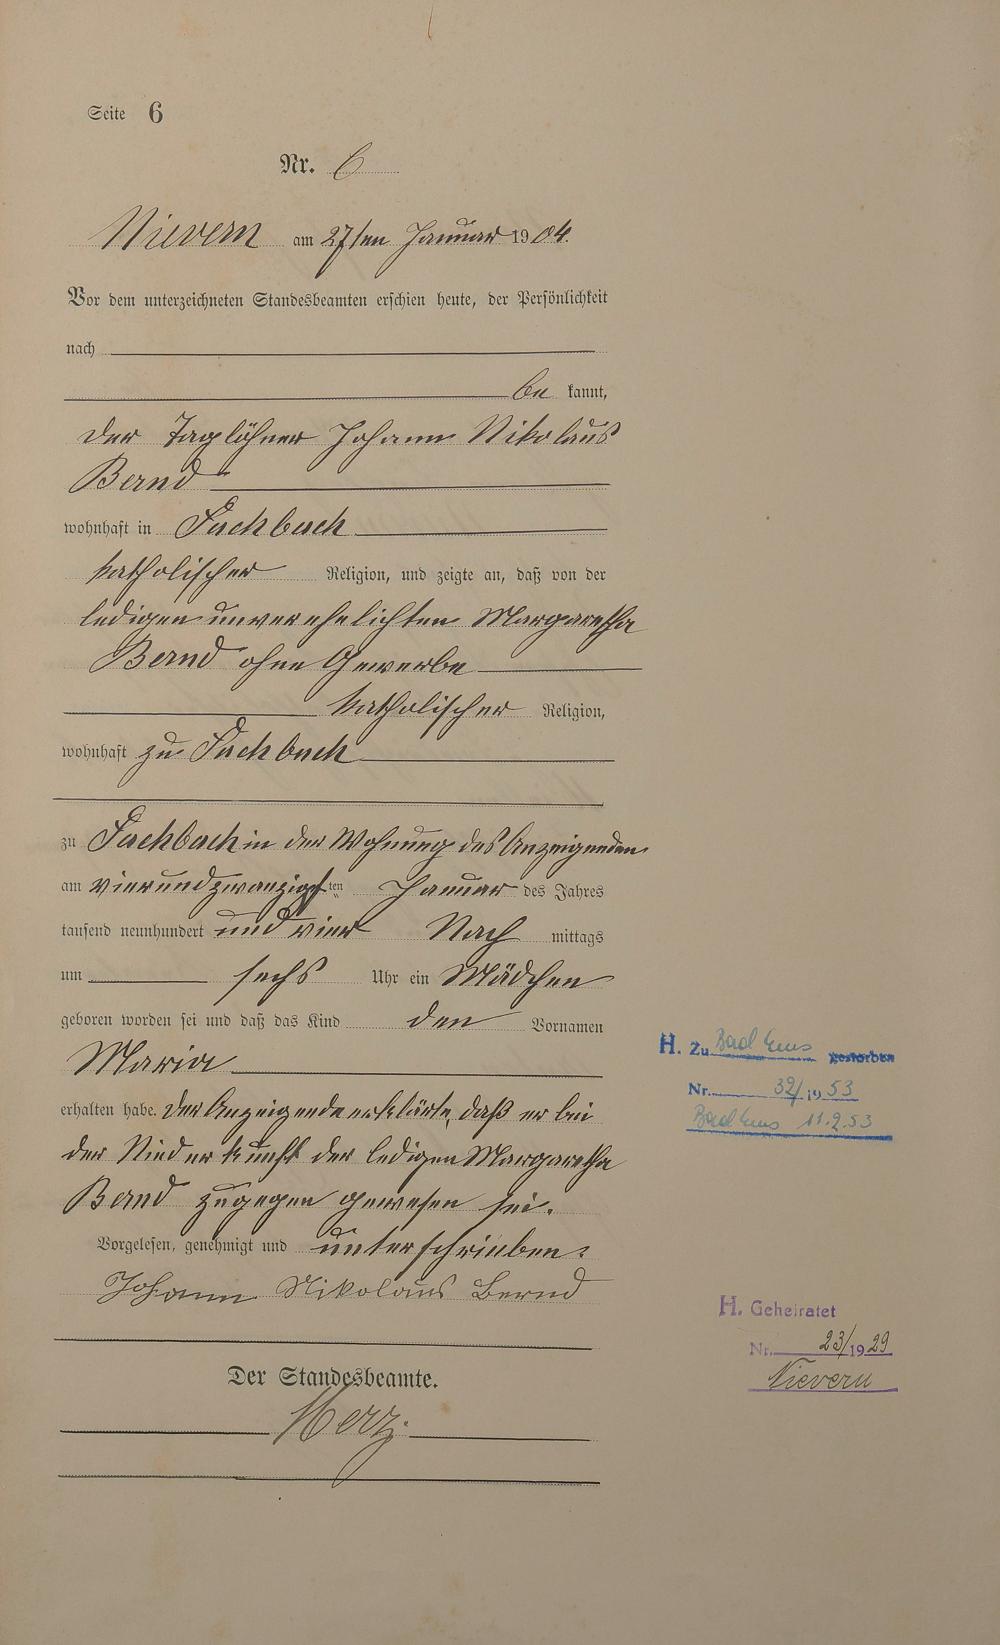 Seite 6
Nr. 6
Nievern am 27ten Januar 1904.
Vor dem unterzeichneten Standesbeamten erschien heute, der Persönlichkeit
nach
be kannt,
der Taglöhner Johann Nikolaus
Bernd
wohnhaft in Fachbach
katholischer Religion, und zeigte an, daß von der
ledigen unverehelichten Margaretha
Bernd ohne Gewerbe
katholischer Religion,
wohnhaft zu Fachbach
zu Fachbach in der Wohnung des Anzeigenden
am vierundzwanzigsten Januar des Jahres
tausend neunhundert und vier Nach mittags
um sechs Uhr ein Mädchen
geboren worden sei und daß das Kind den Vornamen
Maria
erhalten habe. Der Anzeigende erklärte, daß er bei
der Niederkunft der ledigen Margaretha
Bernd zugegen gewesen sei.
Vorgelesen, genehmigt und unterschrieben:
Johann Nikolaus Bernd
Der Standesbeamte.
Merz.
H. Zu Bad Ems gestorben
Nr. 32/1953
Bad Ems 11.2.53
H. Geheiratet
Nr. 23/1929
Nievern